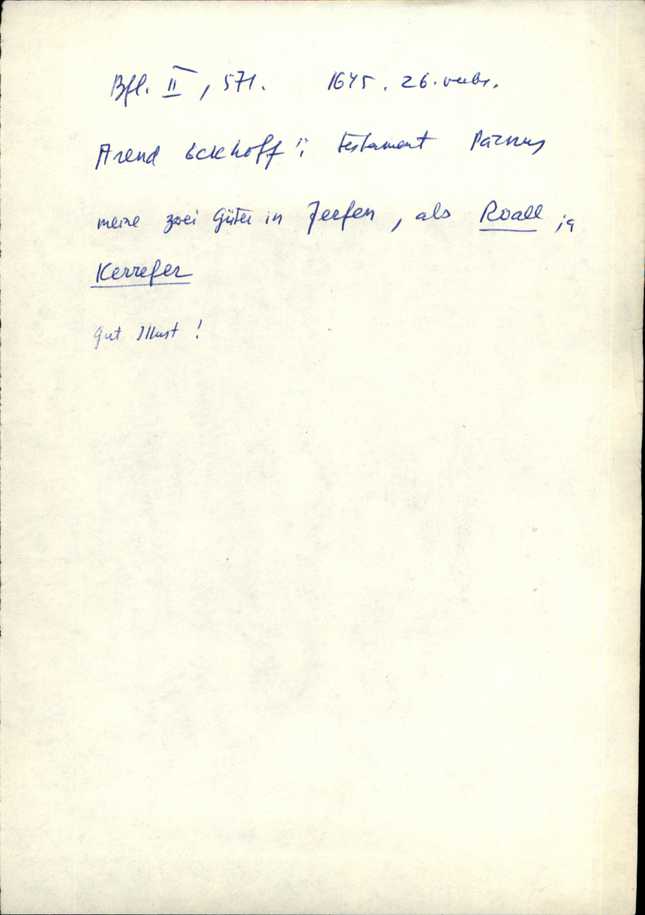 Bfl. II, 571. 1645. 26. veebr.
Arend Eckhoff'i testament Pärnus
meine zwei Güter in Jerfen, als Roall ja
Kerrefer
gut Illust!